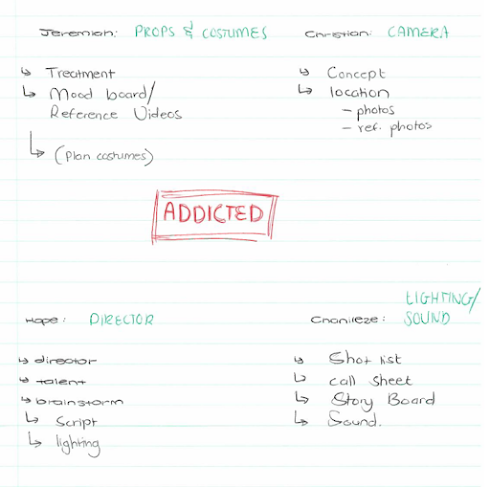 Jeremiah: PROPS & COSTUMES
↳ Treatment
↳ Mood board/
Reference Videos
↳ (Plan costumes)
Christian: CAMERA
↳ Concept
↳ location
– photos
– ref. photos
ADDICTED
Hope: DIRECTOR
↳ director
↳ talent
↳ brainstorm
↳ Script
↳ lighting
LIGHTING/
SOUND
↳ Shot list
↳ call sheet
↳ Story Board
↳ Sound.